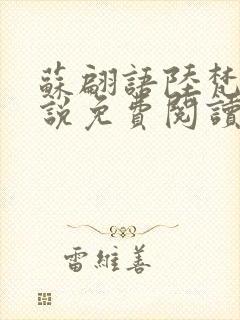 蘇翩語陸梵
說免費閱讀
雷維善